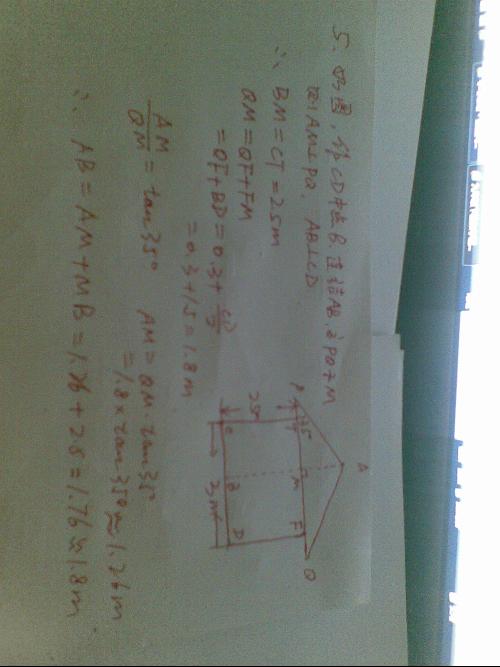 5. 如图,作CD中点B.连结AB,交PQ于M
则AM⊥PQ. AB⊥CD
∴ BM=CT=2.5m
QM=QF+FM
=QF+BD=0.3+CD/2
=0.3+1.5=1.8m
AM/QM=tan35° AM=QM·tan35°
=1.8×tan35°≈1.26m
∴ AB=AM+MB=1.26+2.5=1.76≈1.8m
A
P
35
M
F
Q
2.5m
C
B
D
3m